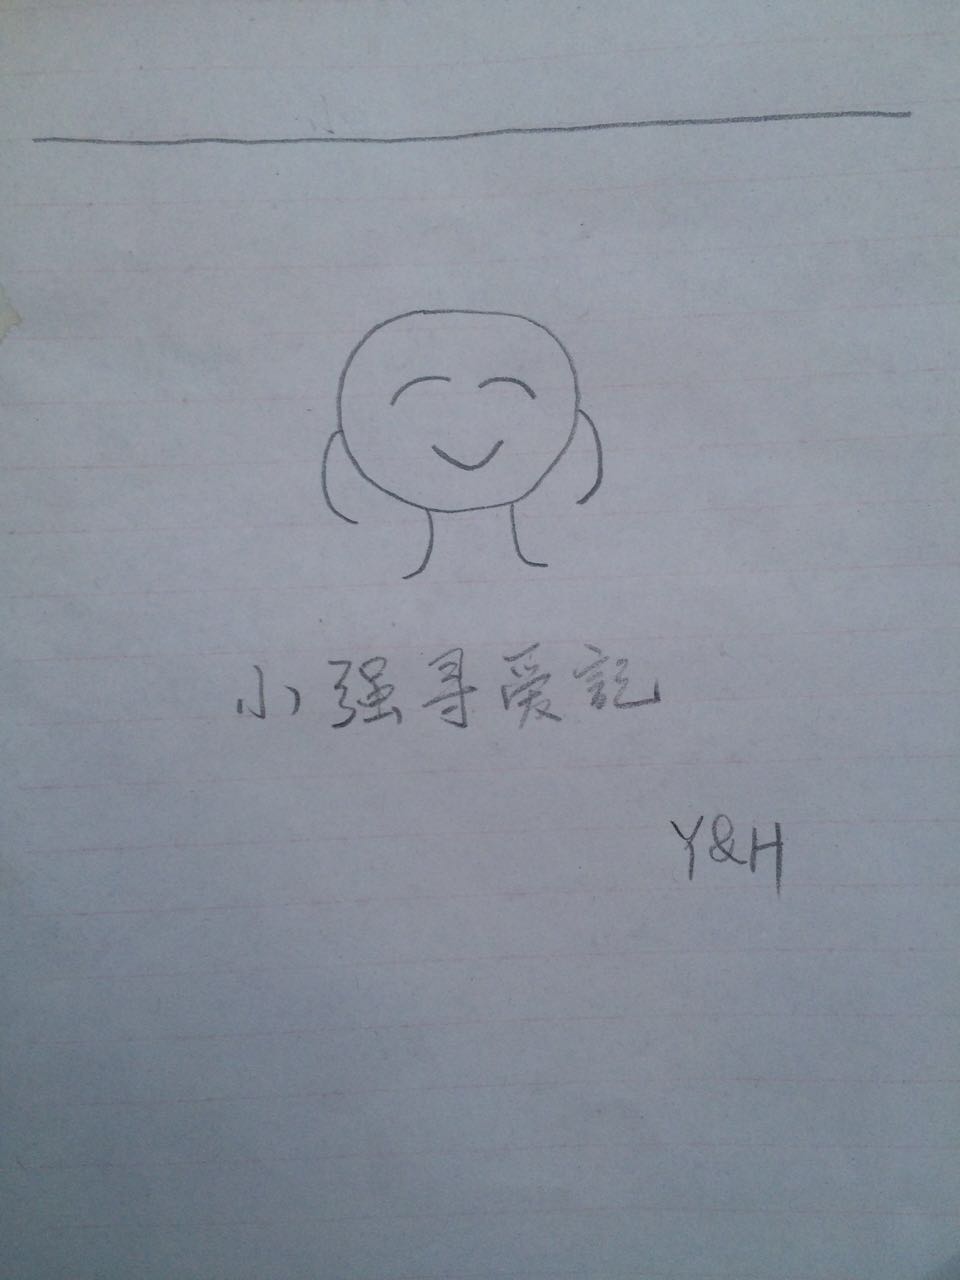 小强寻爱記
Y&H